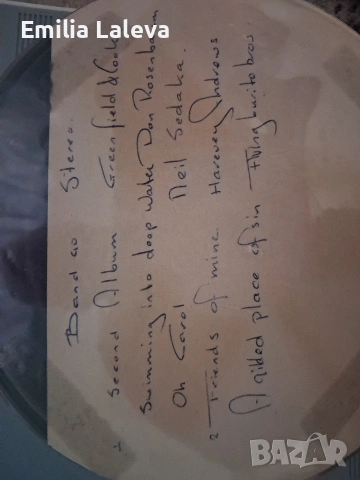 Emilia Laleva
Band 60 Stereo.
1 Second Album Greenfield & Cook
Swimming into deep water Don Rosenbaum
Oh Carol Neil Sedaka.
2 Friends of mine Harevey Andrews
A gilded place of sin Flying burito bros.
BAZAR